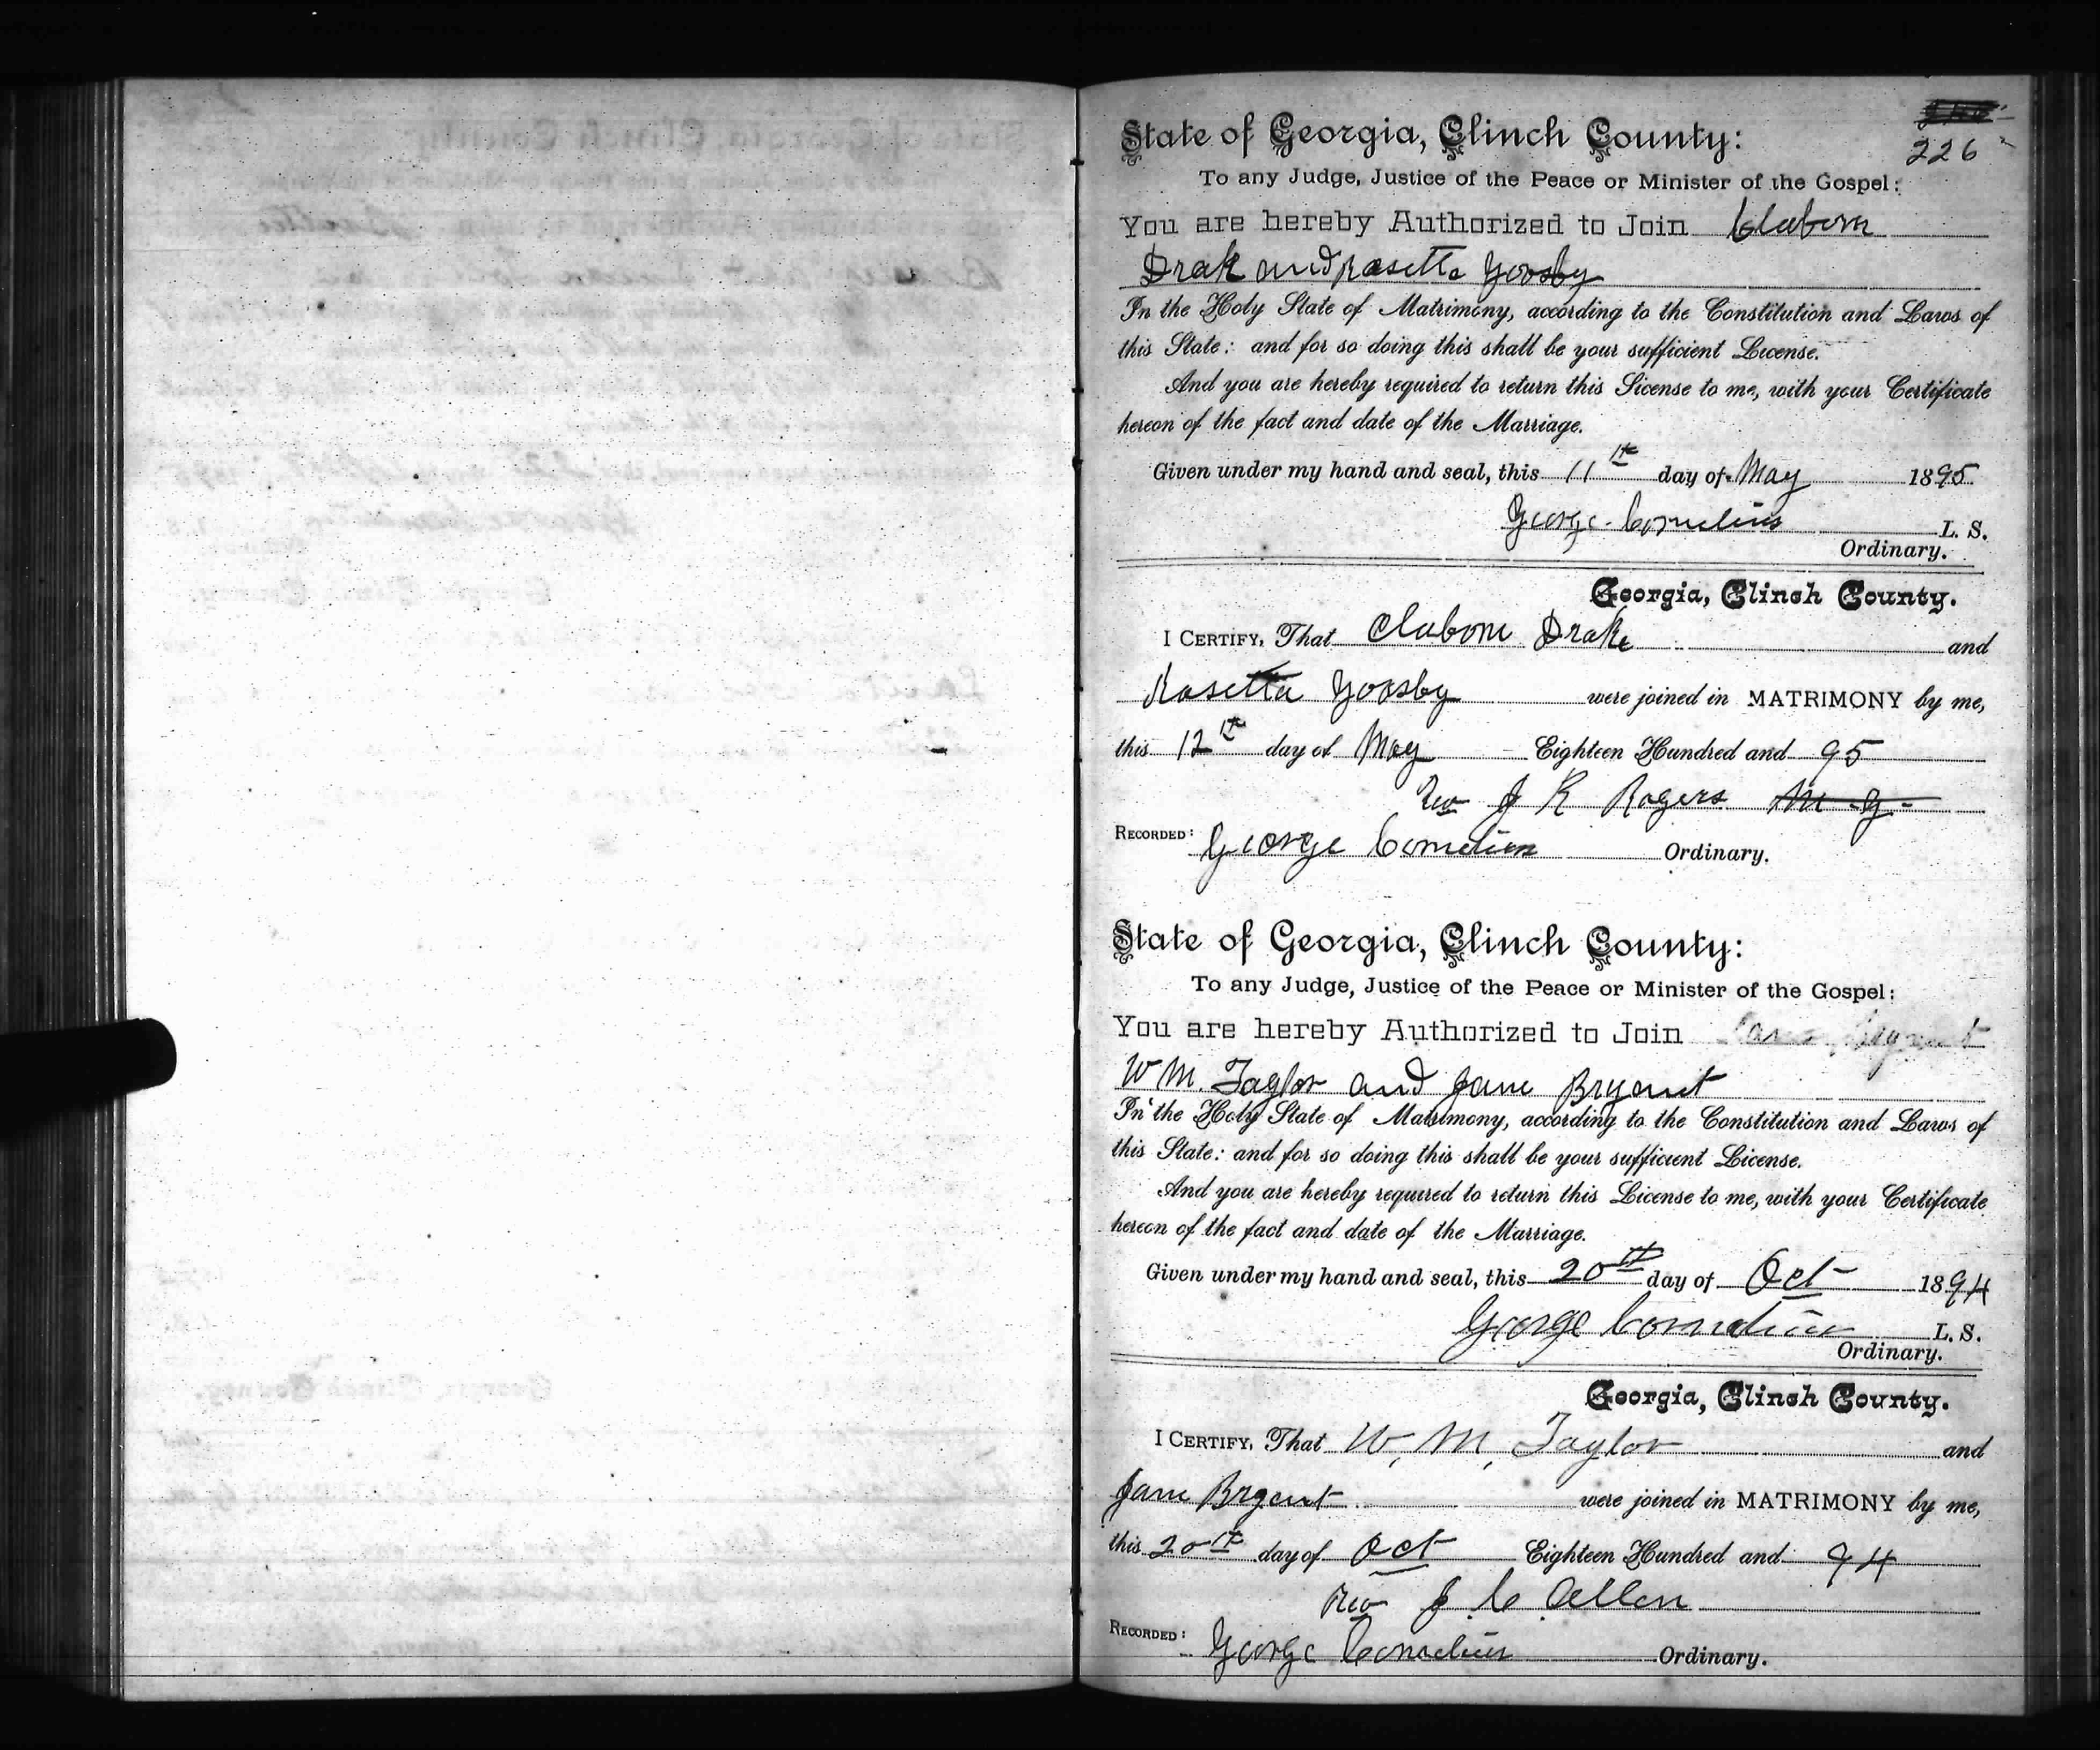 226
State of Georgia, Clinch County:
To any Judge, Justice of the Peace or Minister of the Gospel:
You are hereby Authorized to Join Claborn
Drak and Rosetta Goosby
In the Holy State of Matrimony, according to the Constitution and Laws of
this State: and for so doing this shall be your sufficient License.
And you are hereby required to return this License to me, with your Certificate
hereon of the fact and date of the Marriage.
Given under my hand and seal, this 11th day of May 1895
George Cornelius L. S.
Ordinary.
Georgia, Clinch County.
I CERTIFY, That Claborn Drake and
Rosetta Goosby were joined in MATRIMONY by me,
this 12th day of May Eighteen Hundred and 95
Rev J R Rogers M G
RECORDED: George Cornelius Ordinary.
State of Georgia, Clinch County:
To any Judge, Justice of the Peace or Minister of the Gospel:
You are hereby Authorized to Join
W M. Taylor and Jane Bryant
In the Holy State of Matrimony, according to the Constitution and Laws of
this State: and for so doing this shall be your sufficient License.
And you are hereby required to return this License to me, with your Certificate
hereon of the fact and date of the Marriage.
Given under my hand and seal, this 20th day of Oct 1894
George Cornelius L. S.
Ordinary.
Georgia, Clinch County.
I CERTIFY, That W. M. Taylor and
Jane Bryant were joined in MATRIMONY by me,
this 20th day of Oct Eighteen Hundred and 94
Rev J C Allen
RECORDED: George Cornelius Ordinary.